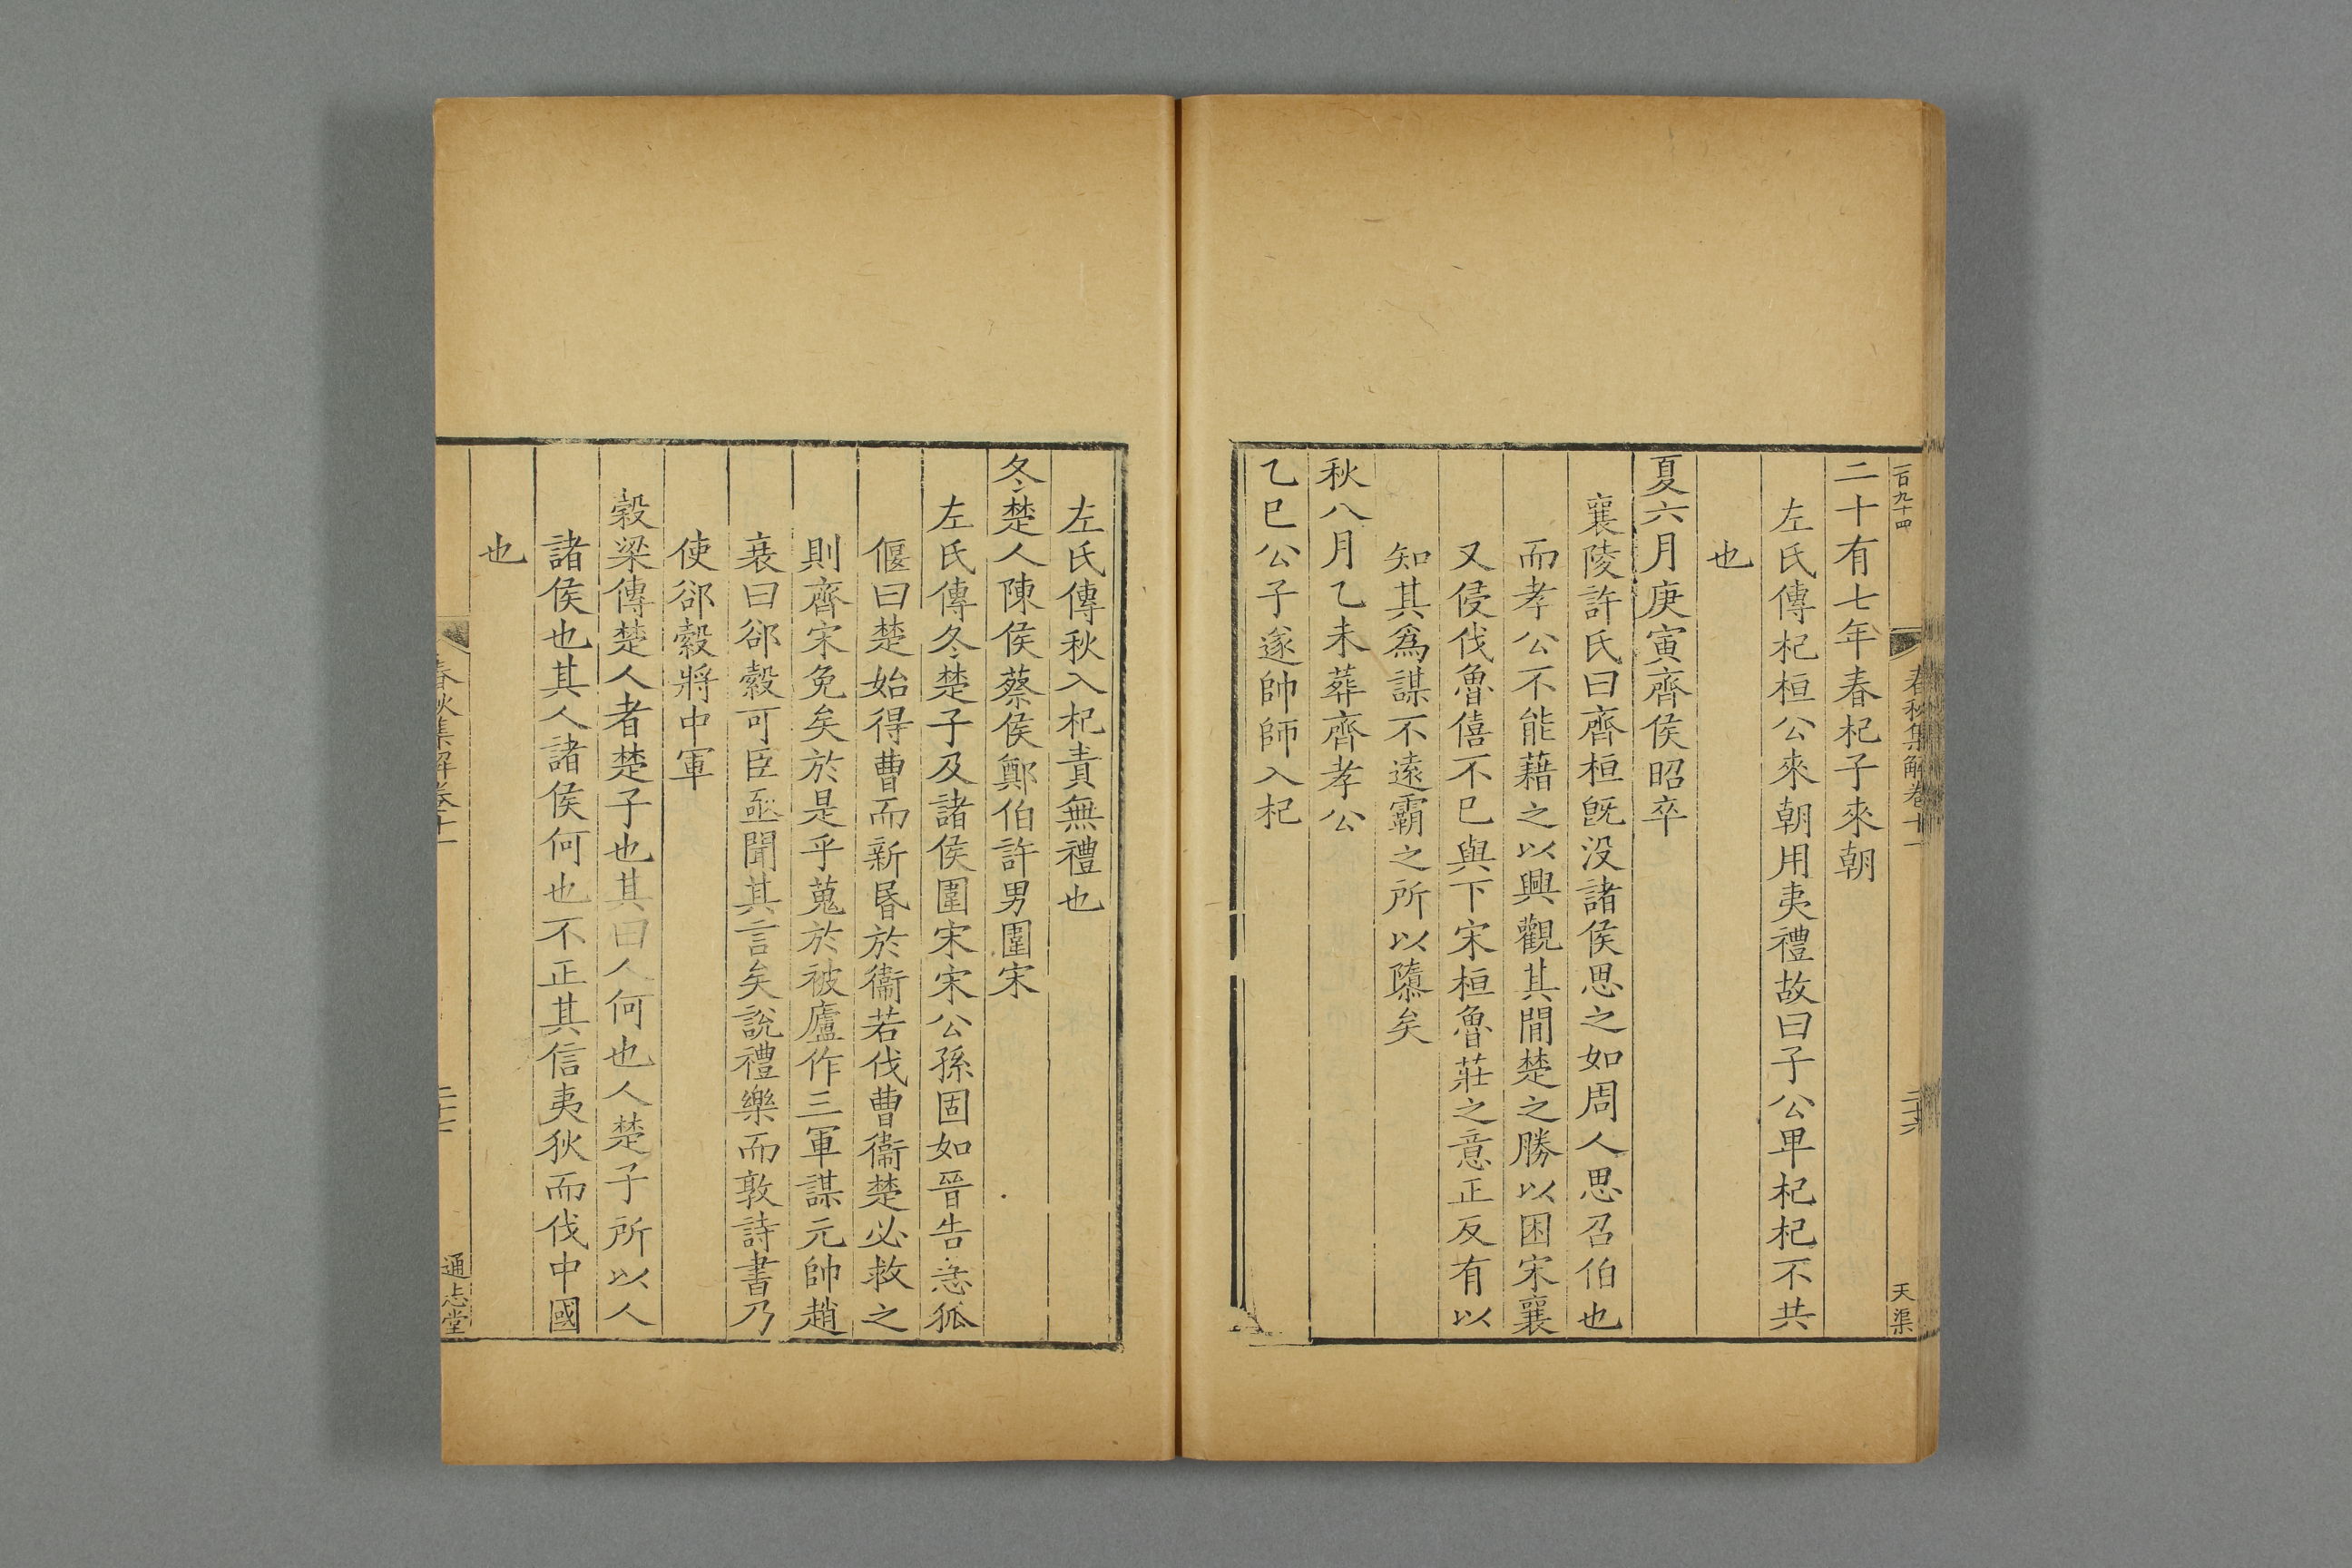 一百九十四
春秋集解卷十一
二十六
天渠
二十有七年春杞子來朝
左氏傳杞桓公來朝用夷禮故曰子公卑杞杞不共
也
夏六月庚寅齊侯昭卒
襄陵許氏曰齊桓旣没諸侯思之如周人思召伯也
而孝公不能藉之以興觀其間楚之勝以困宋襄
又侵伐魯僖不已與下宋桓魯莊之意正反有以
知其爲謀不遠霸之所以隳矣
秋八月乙未葬齊孝公
乙巳公子遂帥師入杞
左氏傳秋入杞責無禮也
冬楚人陳侯蔡侯鄭伯許男圍宋
左氏傳冬楚子及諸侯圍宋宋公孫固如晉告急狐
偃曰楚始得曹而新昏於衞若伐曹衞楚必救之
則齊宋免矣於是乎蒐於被廬作三軍謀元帥趙
衰曰郤縠可臣亟聞其言矣說禮樂而敦詩書乃
使郤縠將中軍
穀梁傳楚人者楚子也其曰人何也人楚子所以人
諸侯也其人諸侯何也不正其信夷狄而伐中國
也
春秋集解卷十一
二十七
通志堂